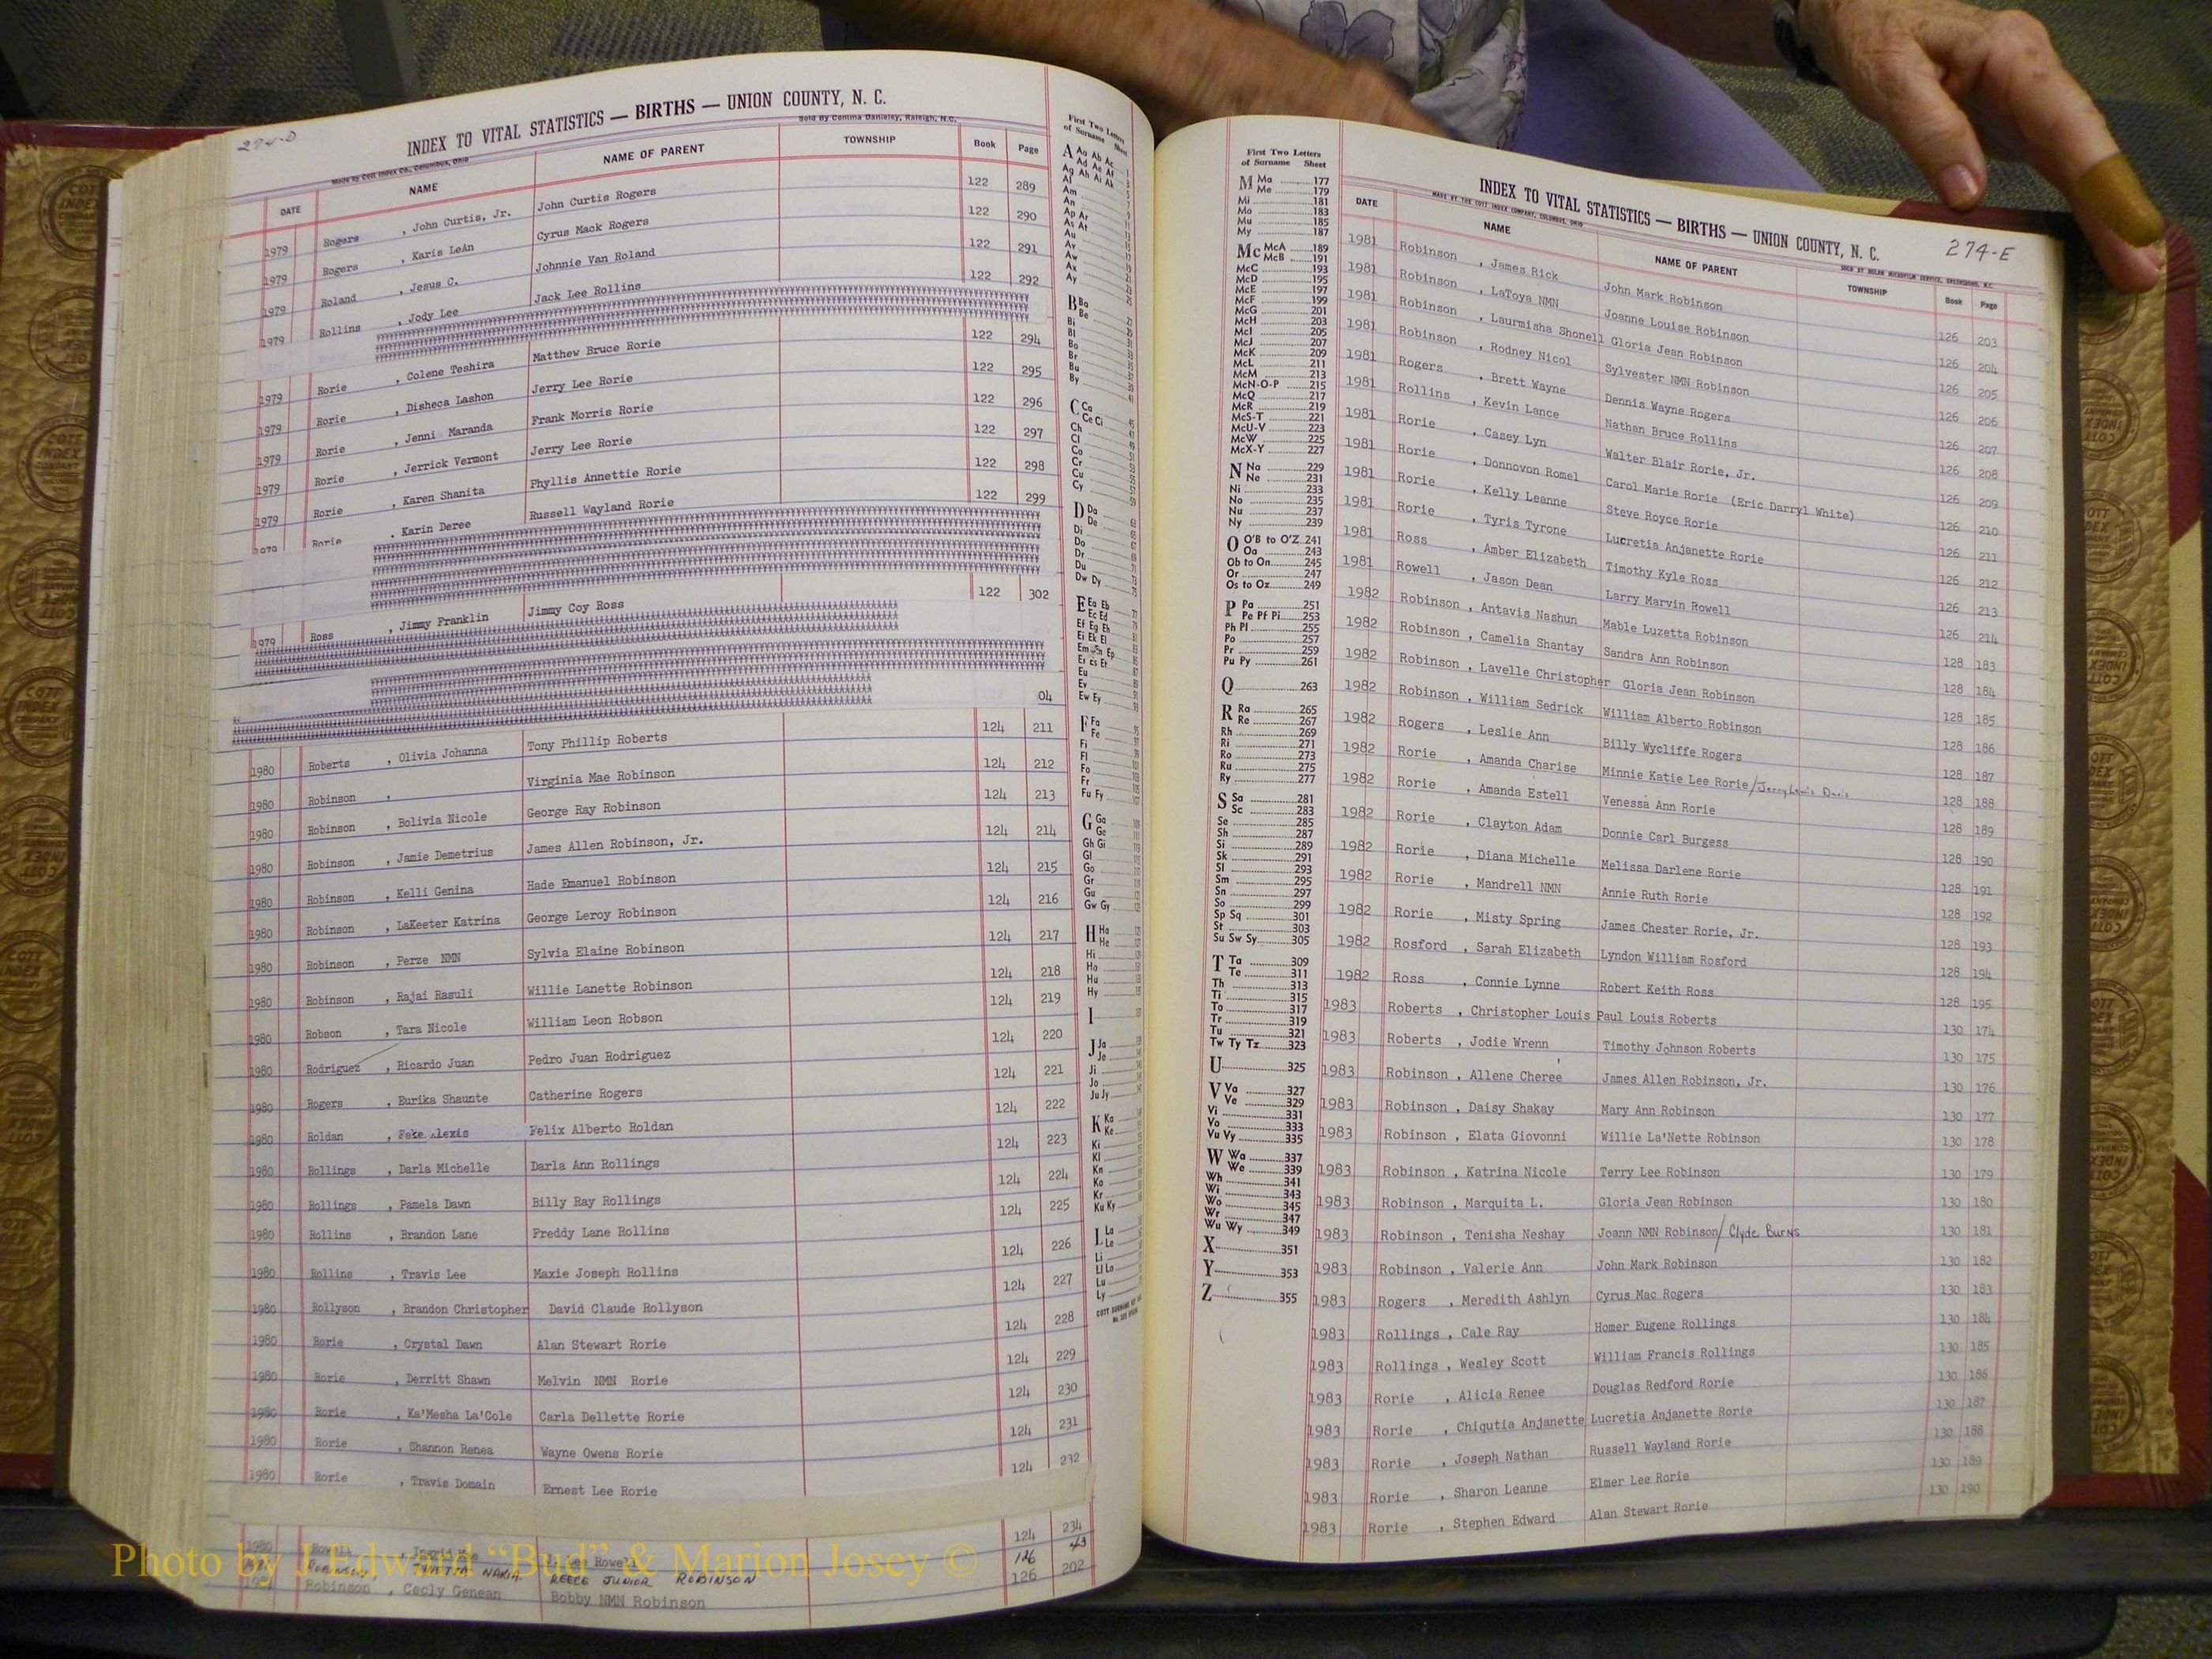 274-D
INDEX TO VITAL STATISTICS — BIRTHS — UNION COUNTY, N. C.
Made by Cott Index Co., Columbus, Ohio
DATE NAME NAME OF PARENT TOWNSHIP Book Page
1979 Rogers , John Curtis, Jr. John Curtis Rogers 122 289
1979 Rogers , Karis LeAn Cyrus Mack Rogers 122 290
1979 Roland , Jesus C. Johnnie Van Roland 122 291
1979 Rollins , Jody Lee Jack Lee Rollins 122 292
1979 Rorie , Colene Teshira Matthew Bruce Rorie 122 294
1979 Rorie , Disheca Lashon Jerry Lee Rorie 122 295
1979 Rorie , Jenni Maranda Frank Morris Rorie 122 296
1979 Rorie , Jerrick Vermont Jerry Lee Rorie 122 297
1979 Rorie , Karen Shanita Phyllis Annettie Rorie 122 298
1979 Rorie , Karin Deree Russell Wayland Rorie 122 299
1979 Ross , Jimmy Franklin Jimmy Coy Ross 122 302
04
1980 Roberts , Olivia Johanna Tony Phillip Roberts 124 211
1980 Robinson , Virginia Mae Robinson 124 212
1980 Robinson , Bolivia Nicole George Ray Robinson 124 213
1980 Robinson , Jamie Demetrius James Allen Robinson, Jr. 124 214
1980 Robinson , Kelli Genina Hade Emanuel Robinson 124 215
1980 Robinson , LaKeeter Katrina George Leroy Robinson 124 216
1980 Robinson , Perze NMN Sylvia Elaine Robinson 124 217
1980 Robinson , Rajai Rasuli Willie Lanette Robinson 124 218
1980 Robson , Tara Nicole William Leon Robson 124 219
1980 Rodriguez , Ricardo Juan Pedro Juan Rodriguez 124 220
1980 Rogers , Eurika Shaunte Catherine Rogers 124 221
1980 Roldan , Alexis Felix Alberto Roldan 124 222
1980 Rollings , Darla Michelle Darla Ann Rollings 124 223
1980 Rollings , Pamela Dawn Billy Ray Rollings 124 224
1980 Rollins , Brandon Lane Freddy Lane Rollins 124 225
1980 Rollins , Travis Lee Maxie Joseph Rollins 124 226
1980 Rollyson , Brandon Christopher David Claude Rollyson 124 227
1980 Rorie , Crystal Dawn Alan Stewart Rorie 124 228
1980 Rorie , Derritt Shawn Melvin NMN Rorie 124 229
1980 Rorie , Ka'Mesha La'Cole Carla Dellette Rorie 124 230
1980 Rorie , Shannon Renea Wayne Owens Rorie 124 231
1980 Rorie , Travis Domain Ernest Lee Rorie 124 232
1980 Rowell , Ingrid Lee Rowell 124 234
ROBINSON NAKIA REECE JUNIOR ROBINSON 126 43
Robinson , Cecly Genean Bobby NMN Robinson 126 202
First Two Letters of Surname Sheet
A Aa Ab Ac
Ad Ae Af
Ag Ah Ai Ak
Al
Am
An
Ap Ar
As At
Au
Av
Aw
Ax
Ay
B Ba
Be
Bi
Bl
Bo
Br
Bu
By
C Ca
Ce Ci
Ch
Cl
Co
Cr
Cu
Cy
D Da
De
Di
Do
Dr
Du
Dw Dy
E Ea Eb
Ec Ed
Ef Eg Eh
Ei Ek El
Em En Ep
Er Es Et
Eu
Ev
Ew Ey
F Fa
Fe
Fi
Fl
Fo
Fr
Fu Fy
G Ga
Ge
Gh Gi
Gl
Go
Gr
Gu
Gw Gy
H Ha
He
Hi
Ho
Hu
Hy
I
J Ja
Je
Ji
Jo
Ju Jy
K Ka
Ke
Ki
Kl
Kn
Ko
Kr
Ku Ky
L La
Le
Li
Ll Lo
Lu
Ly
First Two Letters of Surname Sheet
M Ma 177
Me 179
Mi 181
Mo 183
Mu 185
My 187
Mc McA 189
McB 191
McC 193
McD 195
McE 197
McF 199
McG 201
McH 203
McI 205
McJ 207
McK 209
McL 211
McM 213
McN-O-P 215
McQ 217
McR 219
McS-T 221
McU-V 223
McW 225
McX-Y 227
N Na 229
Ne 231
Ni 233
No 235
Nu 237
Ny 239
O O'B to O'Z 241
Oa 243
Ob to On 245
Or 247
Os to Oz 249
P Pa 251
Pe Pf Pi 253
Ph Pl 255
Po 257
Pr 259
Pu Py 261
Q 263
R Ra 265
Re 267
Rh 269
Ri 271
Ro 273
Ru 275
Ry 277
S Sa 281
Sc 283
Se 285
Sh 287
Si 289
Sk 291
Sl 293
Sm 295
Sn 297
So 299
Sp Sq 301
St 303
Su Sw Sy 305
T Ta 309
Te 311
Th 313
Ti 315
To 317
Tr 319
Tu 321
Tw Ty Tz 323
U 325
V Va 327
Ve 329
Vi 331
Vo 333
Vu Vy 335
W Wa 337
We 339
Wh 341
Wi 343
Wo 345
Wr 347
Wu Wy 349
X 351
Y 353
Z 355
INDEX TO VITAL STATISTICS — BIRTHS — UNION COUNTY, N. C.
274-E
MADE BY THE COTT INDEX COMPANY, COLUMBUS, OHIO
DATE NAME NAME OF PARENT TOWNSHIP Book Page
1981 Robinson , James Rick John Mark Robinson 126 203
1981 Robinson , LaToya NMN Joanne Louise Robinson 126 204
1981 Robinson , Laurmisha Shonell Gloria Jean Robinson 126 205
1981 Robinson , Rodney Nicol Sylvester NMN Robinson 126 206
1981 Rogers , Brett Wayne Dennis Wayne Rogers 126 207
1981 Rollins , Kevin Lance Nathan Bruce Rollins 126 208
1981 Rorie , Casey Lyn Walter Blair Rorie, Jr. 126 209
1981 Rorie , Donnovon Romel Carol Marie Rorie (Eric Darryl White) 126 210
1981 Rorie , Kelly Leanne Steve Royce Rorie 126 211
1981 Rorie , Tyris Tyrone Lucretia Anjanette Rorie 126 212
1981 Ross , Amber Elizabeth Timothy Kyle Ross 126 213
1981 Rowell , Jason Dean Larry Marvin Rowell 126 214
1982 Robinson , Antavis Nashun Mable Luzetta Robinson 128 183
1982 Robinson , Camelia Shantay Sandra Ann Robinson 128 184
1982 Robinson , Lavelle Christopher Gloria Jean Robinson 128 185
1982 Robinson , William Sedrick William Alberto Robinson 128 186
1982 Rogers , Leslie Ann Billy Wycliffe Rogers 128 187
1982 Rorie , Amanda Charise Minnie Katie Lee Rorie/Jerry Lewis Davis 128 188
1982 Rorie , Amanda Estell Venessa Ann Rorie 128 189
1982 Rorie , Clayton Adam Donnie Carl Burgess 128 190
1982 Rorie , Diana Michelle Melissa Darlene Rorie 128 191
1982 Rorie , Mandrell NMN Annie Ruth Rorie 128 192
1982 Rorie , Misty Spring James Chester Rorie, Jr. 128 193
1982 Rosford , Sarah Elizabeth Lyndon William Rosford 128 194
1982 Ross , Connie Lynne Robert Keith Ross 128 195
1983 Roberts , Christopher Louis Paul Louis Roberts 130 174
1983 Roberts , Jodie Wrenn Timothy Johnson Roberts 130 175
1983 Robinson , Allene Cheree James Allen Robinson, Jr. 130 176
1983 Robinson , Daisy Shakay Mary Ann Robinson 130 177
1983 Robinson , Elata Giovonni Willie La'Nette Robinson 130 178
1983 Robinson , Katrina Nicole Terry Lee Robinson 130 179
1983 Robinson , Marquita L. Gloria Jean Robinson 130 180
1983 Robinson , Tenisha Neshay Joann NMN Robinson/ Clyde Burns 130 181
1983 Robinson , Valerie Ann John Mark Robinson 130 182
1983 Rogers , Meredith Ashlyn Cyrus Mac Rogers 130 183
1983 Rollings , Cale Ray Homer Eugene Rollings 130 184
1983 Rollings , Wesley Scott William Francis Rollings 130 185
1983 Rorie , Alicia Renee Douglas Redford Rorie 130 186
1983 Rorie , Chiqutia Anjanette Lucretia Anjanette Rorie 130 187
1983 Rorie , Joseph Nathan Russell Wayland Rorie 130 188
1983 Rorie , Sharon Leanne Elmer Lee Rorie 130 189
1983 Rorie , Stephen Edward Alan Stewart Rorie 130 190
Photo by J.Edward "Bud" & Marion Josey ©